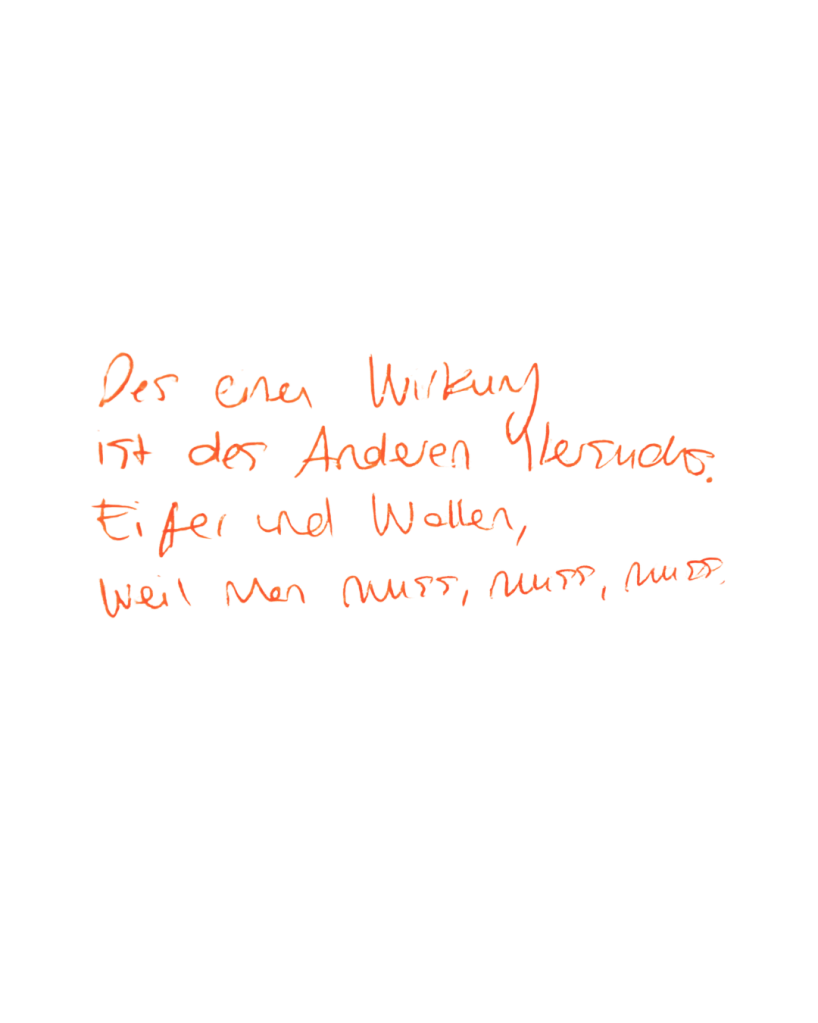 Des einen Wirkung
ist des Anderen Versuch.
Eifer und Wollen,
weil man muss, muss, muss.